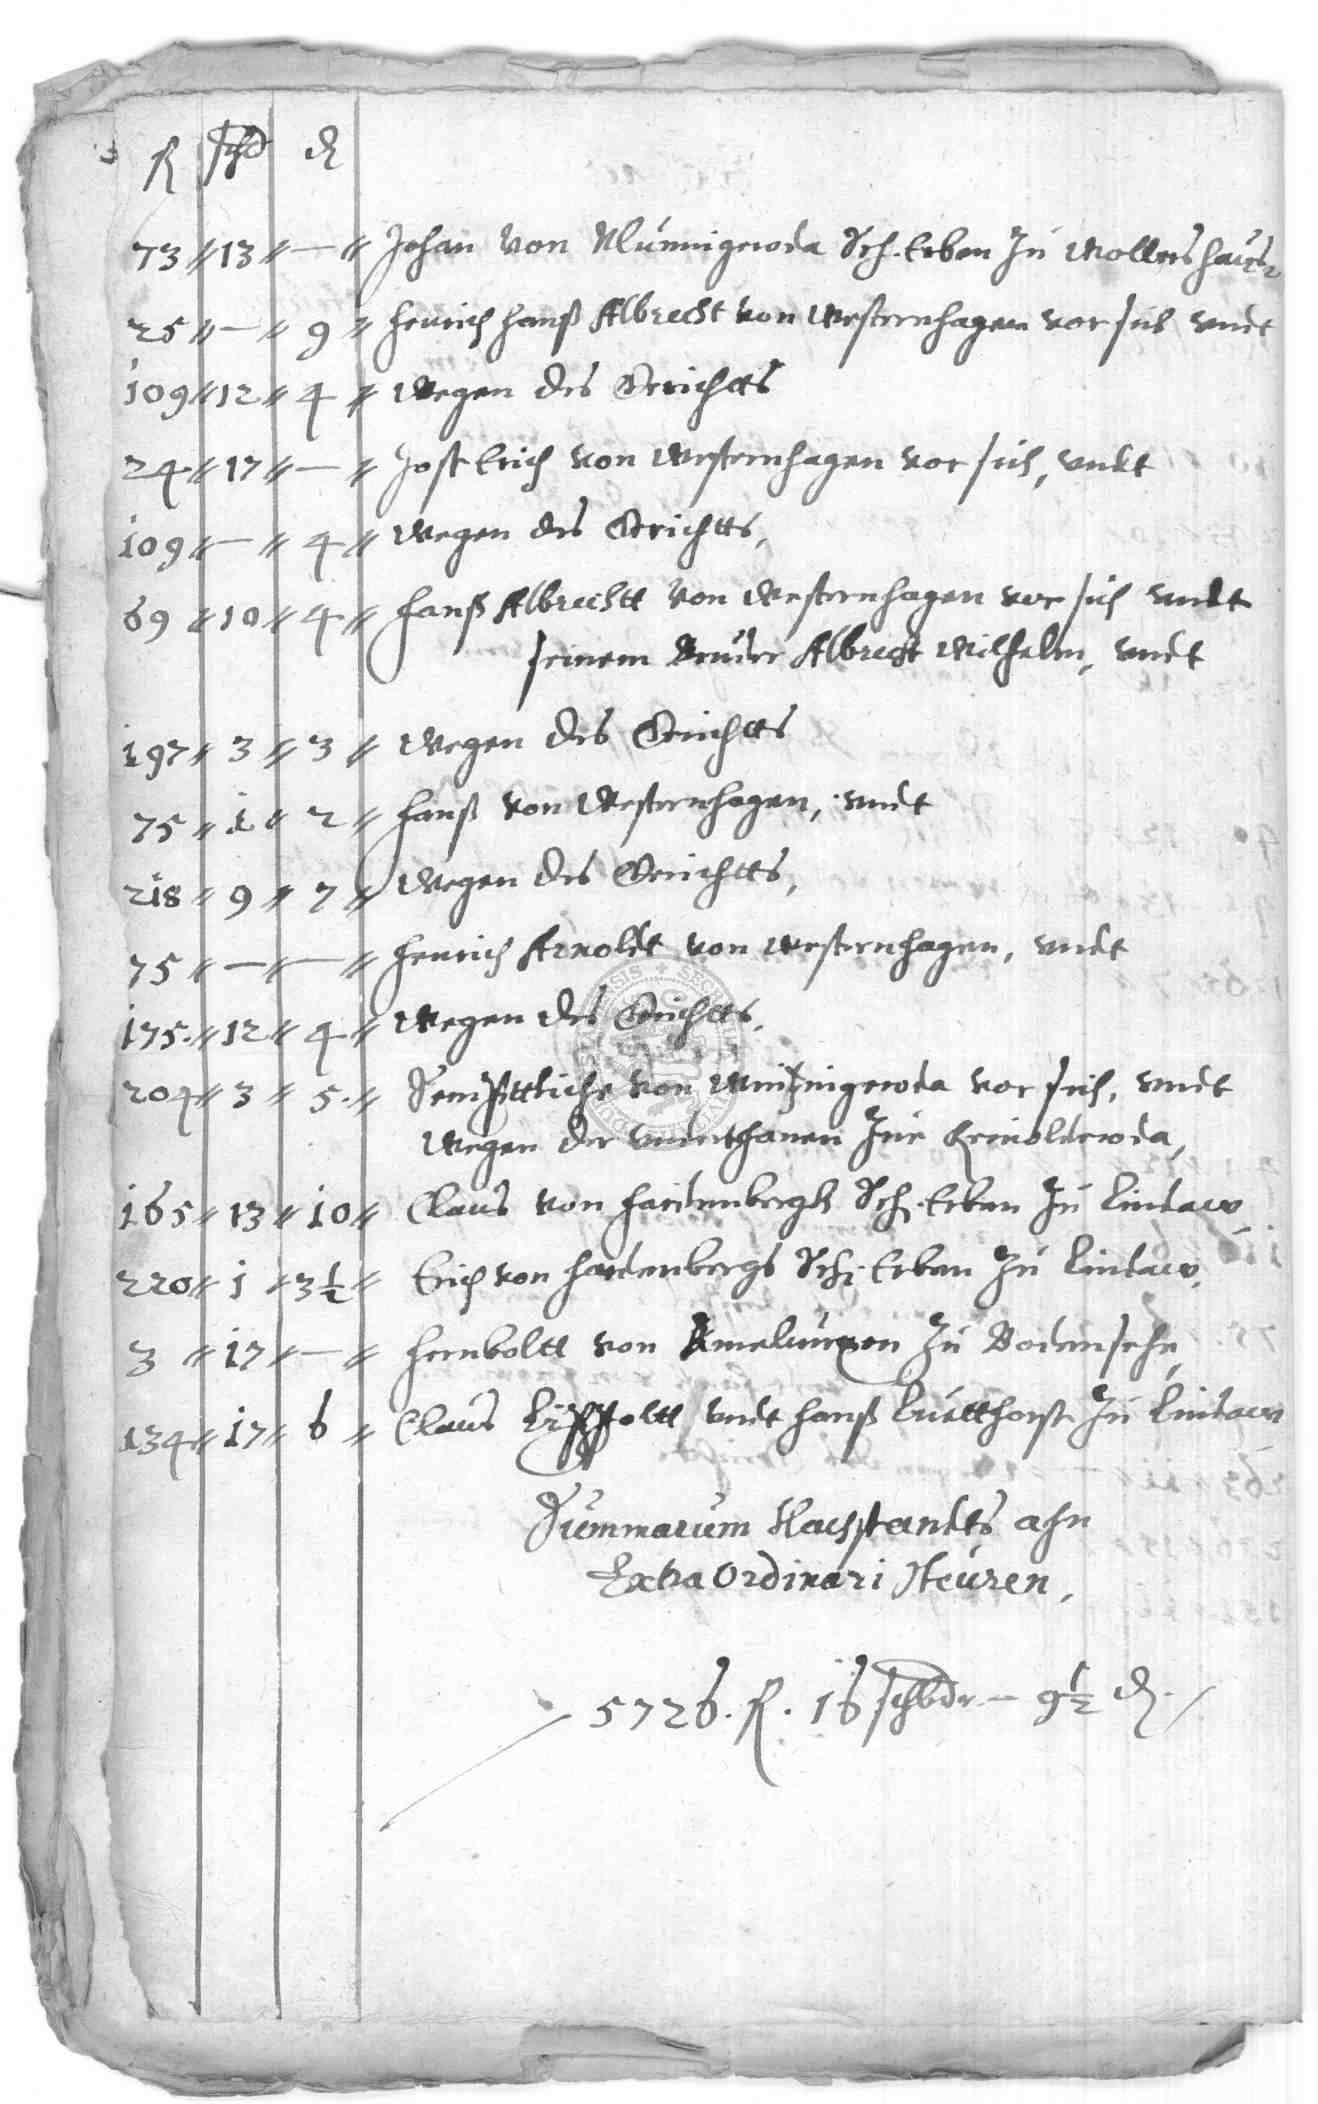 fl schd ₰
73 // 13 // — // Johan von Minnigeroda Sch. Erben Zu Wollershausen
25 // — // 9 // Henrich Hanß Albrecht von Westernhagen vor sich vndt
109 // 12 // 4 // Wegen des Gerichtts
24 // 17 // — // Jost Erich von Westernhagen vor sich, vndt
109 // — // 4 // Wegen des Gerichtts,
69 // 10 // 4 // Hanß Albrechtt von Westernhagen vor sich vndt
seinem Bruder Albrecht Wilhelm, vndt
197 // 3 // 3 // Wegen des Gerichtts
75 // 1 // 2 // Hanß von Westernhagen, vndt
218 // 9 // 7 // Wegen des Gerichtts,
75 // — // — // Henrich Arnoldt von Westernhagen, vndt
175 // 12 // 4 // Wegen des Gerichtts,
204 // 3 // 5 // Sembttliche von Wintzingeroda vor sich, vndt
Wegen der vnderthanen Zue
165 // 13 // 10 // Claus von Hardenbergs Sch. Erben Zu Lindaw,
220 // 1 // 3½ // Erich von Hardenbergs Sch. Erben Zu Lindaw,
3 // 17 // — // Hemboltt von Amelunxen Zu Bodensehe,
134 // 17 // 6 // Claus vndt Hanß Luetthorst Zu Lindaw
Summarum Nachstandts ahn
Extra Ordinari Steuren,
5726. fl. 16 schbdr — 9½ ₰.